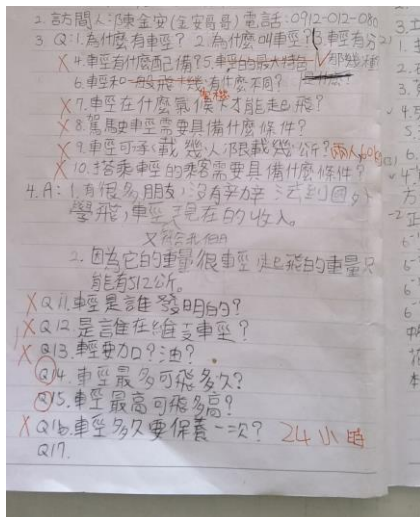 2. 訪問人:陳金安(金安哥哥)電話:0912-012-080
3 Q:1.為什麼有車輕?2.為什麼叫車輕?3.車輕有分
X 4.車輕有什麼配備?5.車輕的最大特色 那幾種
6.車輕和一般飛十幾有什麼不同?
X 7.車輕在什麼氣候下才能起飛?
X 8.駕駛車輕需要具備什麼條件?
X 9.車輕可承載幾人?限載幾公斤?兩人60
X 10.搭乘車輕的乘客需要具備什麼條件?
4.A:1.有很多朋友,沒有辛辛 法到國外
學飛,車輕 現在的收入。
2.因為它的重量很車輕 起飛的重量只
能有512公斤。
X Q11.車輕是誰發明的?
X Q12.是誰在維支車輕?
X Q13.輕要加?油?
Q14.車輕最多可飛多久?
Q15.車輕最高可飛多高?
X Q16.車輕多久要保養一次?24小時
Q17.